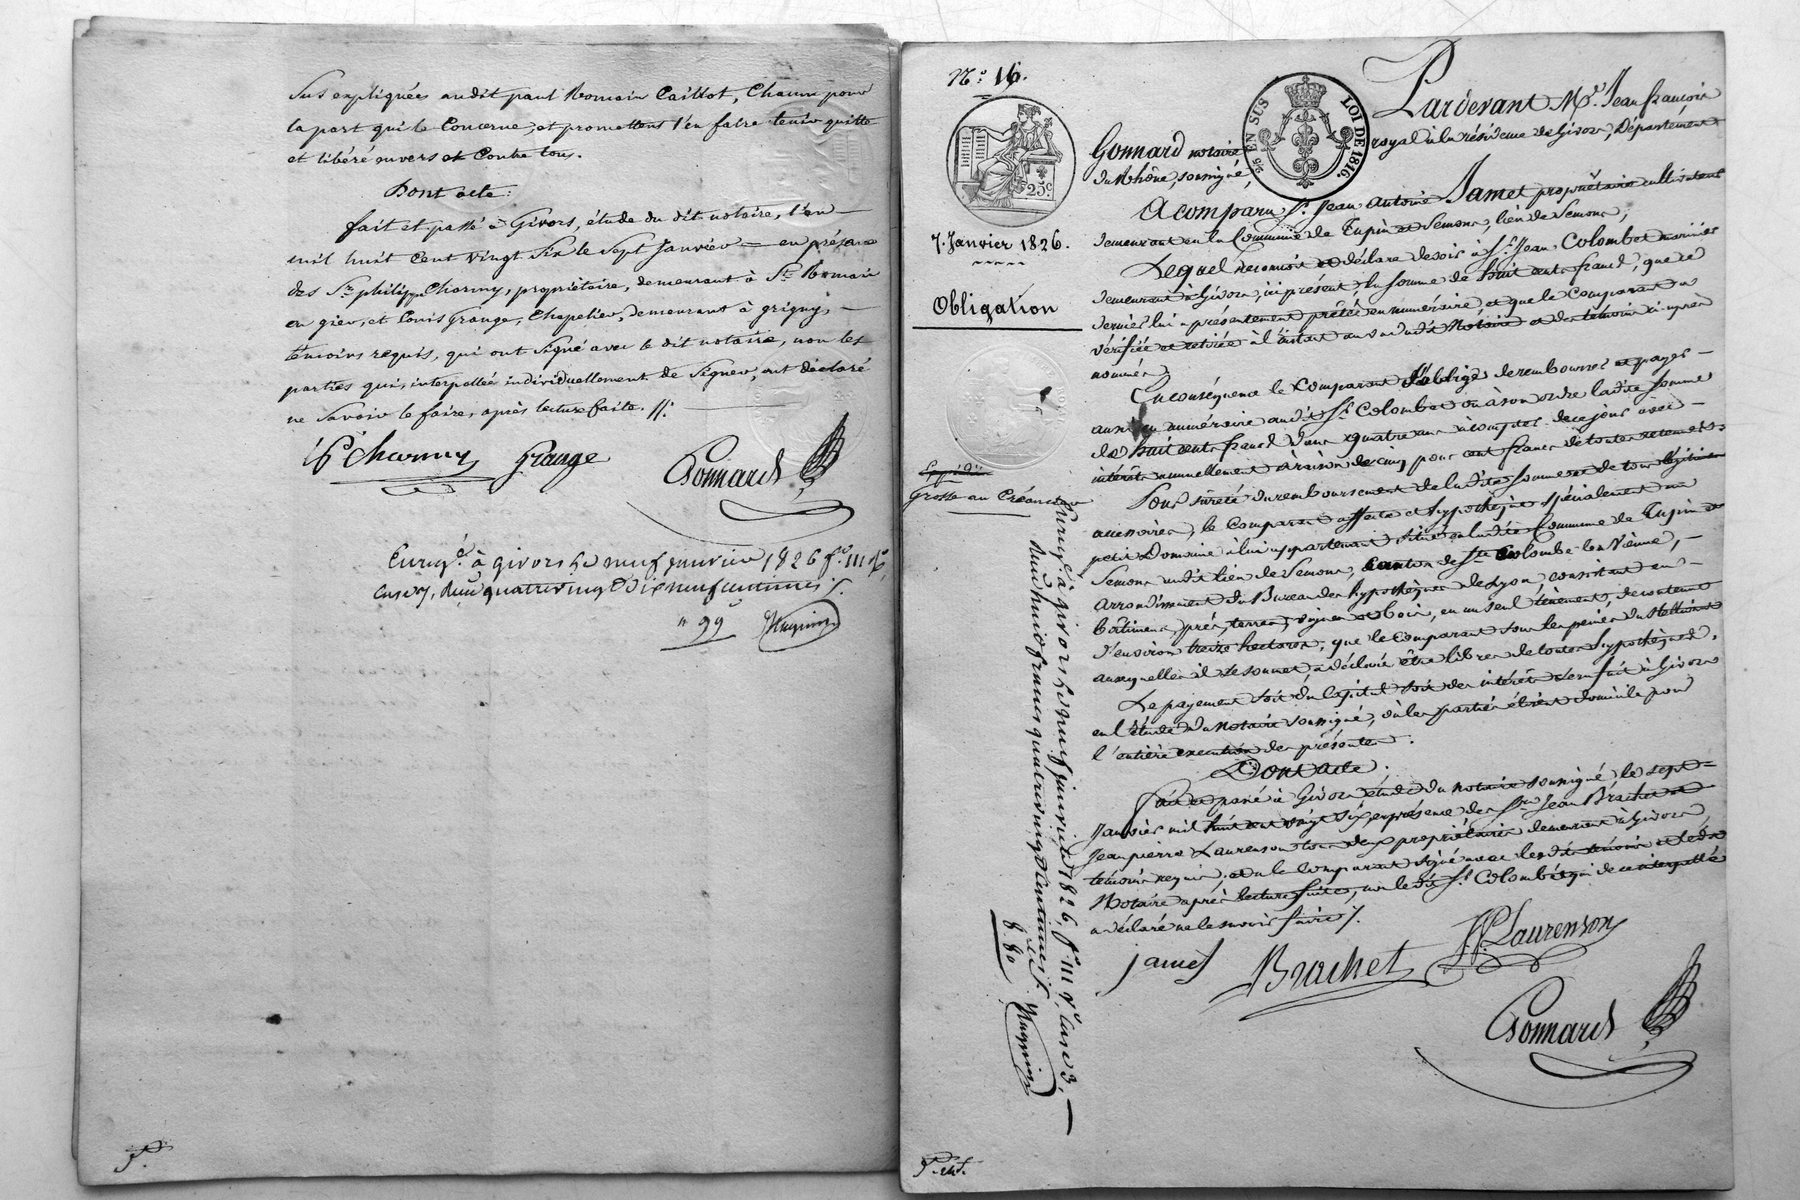 sus expliquées audit paul Romain Caillot, Chacun pour
la part qui le Concerne, et promettent l'en faire tenir quitte
et libéré envers et Contre tous.
Dont acte:
fait et passé à Givors, étude du dit notaire, l'an
mil huit Cent vingt Six le Sept Janvier en présence
des Srs philippe Charmy, propriétaire, demeurant à St Romain
en gier, et Louis Grange, Chapelier, demeurant à grigny,
témoins requis, qui ont Signé avec le dit notaire, non les
parties qui, interpellées individuellement de Signer, ont déclaré
ne Savoir le faire, après lecture faite.
P Charmy Grange Gonnard
Enreg.é à givors le neuf janvier 1826 f.o 111 Ro
Case 7, reçu quatrevingt dixneuf centimes
" 99
P.
No. 16.
96 EN SUS LOI DE 1816.
25c
7. Janvier 1826.
Obligation
Expédié
Grosse au Créancier
Pardevant Me. Jean françois
Gonnard notaire royal à la résidence de Givors, Département
du Rhône, soussigné,
A comparu Sr. Jean Antoine Jamet propriétaire cultivateur
demeurant en la Commune de Tupin et Semons, lieu de Semons,
Lequel reconnoit et déclare devoir à Sr. Jean Colombet marinier
demeurant à Givors, ici présent, la somme de huit cents francs, que ce
dernier lui a présentement prêtée en numéraire, et que le Comparant a
vérifiée et retirée à l'instant au vu dudit Notaire et des témoins ci après
nommés.
En conséquence le Comparant s'oblige de rembourser et payer
aussi en numéraire audit Sr. Colombet ou à son ordre ladite somme
de huit cents francs dans quatre ans à compter de ce jour avec
intérêts annuellement à raison de cinq pour cent francs de toutes retenues.
Pour sûreté du remboursement de ladite somme et de tous légitimes
accessoires, le Comparant affecte et hypothèque spécialement un
petit Domaine à lui appartenant situé en ladite Commune de Tupin et
Semons audit lieu de Semons, Canton de Ste Colombe-lès-Vienne,
arrondissement du Bureau des hypothèques de Lyon, consistant en
bâtiments, prés, terres, vignes et bois, en un seul tènement, de contenue
d'environ treize hectares, que le Comparant sous les peines du Stellionat
auxquelles il se soumet, a déclaré être libres de toutes hypothèques.
Le payement soit du Capital soit des intérêts sera fait à Givors
en l'étude du Notaire soussigné, où les parties élisent domicile pour
l'entière exécution des présentes.
Dont acte.
Fait et passé à Givors étude du notaire soussigné, le sept
Janvier mil huit cent vingt six en présence des Srs Jean Brachet et
Jean pierre Laurenson tous deux propriétaires demeurant à Givors,
témoins requis. et a le Comparant signé avec lesdits témoins et ledit
Notaire après lecture faite, non ledit Sr. Colombet qui de ce interpellé
a déclaré ne le savoir faire.
Jamet Brachet JP. Laurenson
Gonnard
Enreg.é à givors le neuf janvier 1826, fo 111 Vo Case 3,
reçu huit francs quatrevingt centimes
8. 80